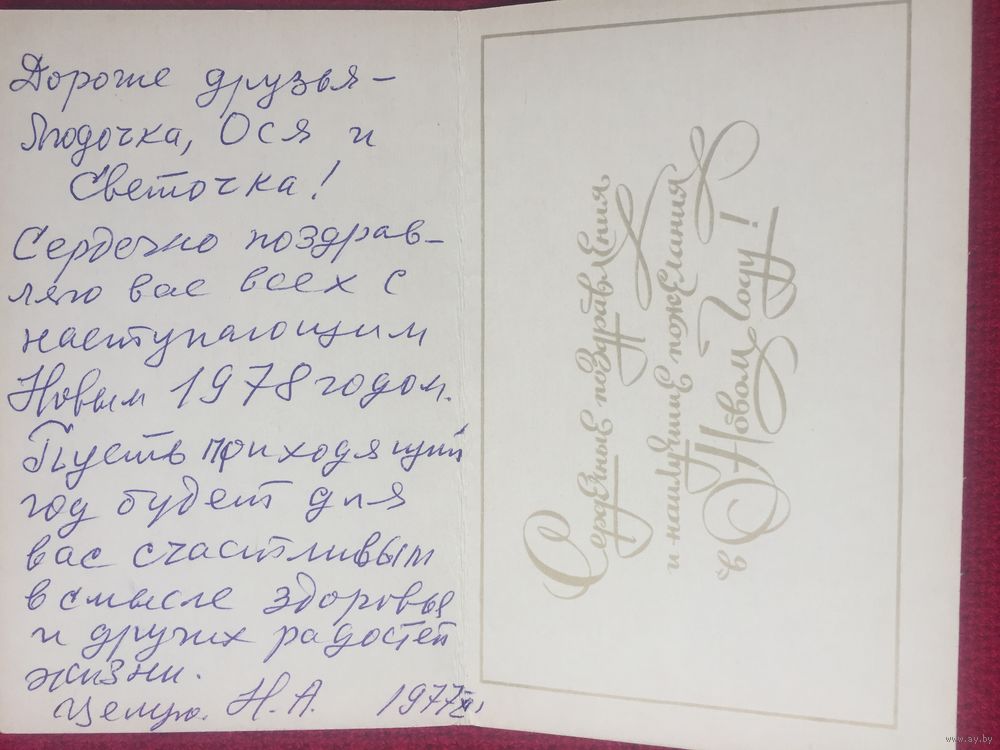 Дорогие друзья –
Людочка, Ося и
Светочка!
Сердечно поздрав–
ляю вас всех с
наступающим
Новым 1978 годом.
Пусть приходящий
год будет для
вас счастливым
в смысле здоровья
и других радостей
жизни.
Целую. Н.А. 1977 XII
Сердечные поздравления
и наилучшие пожелания
в Новом Году!
www.ay.by